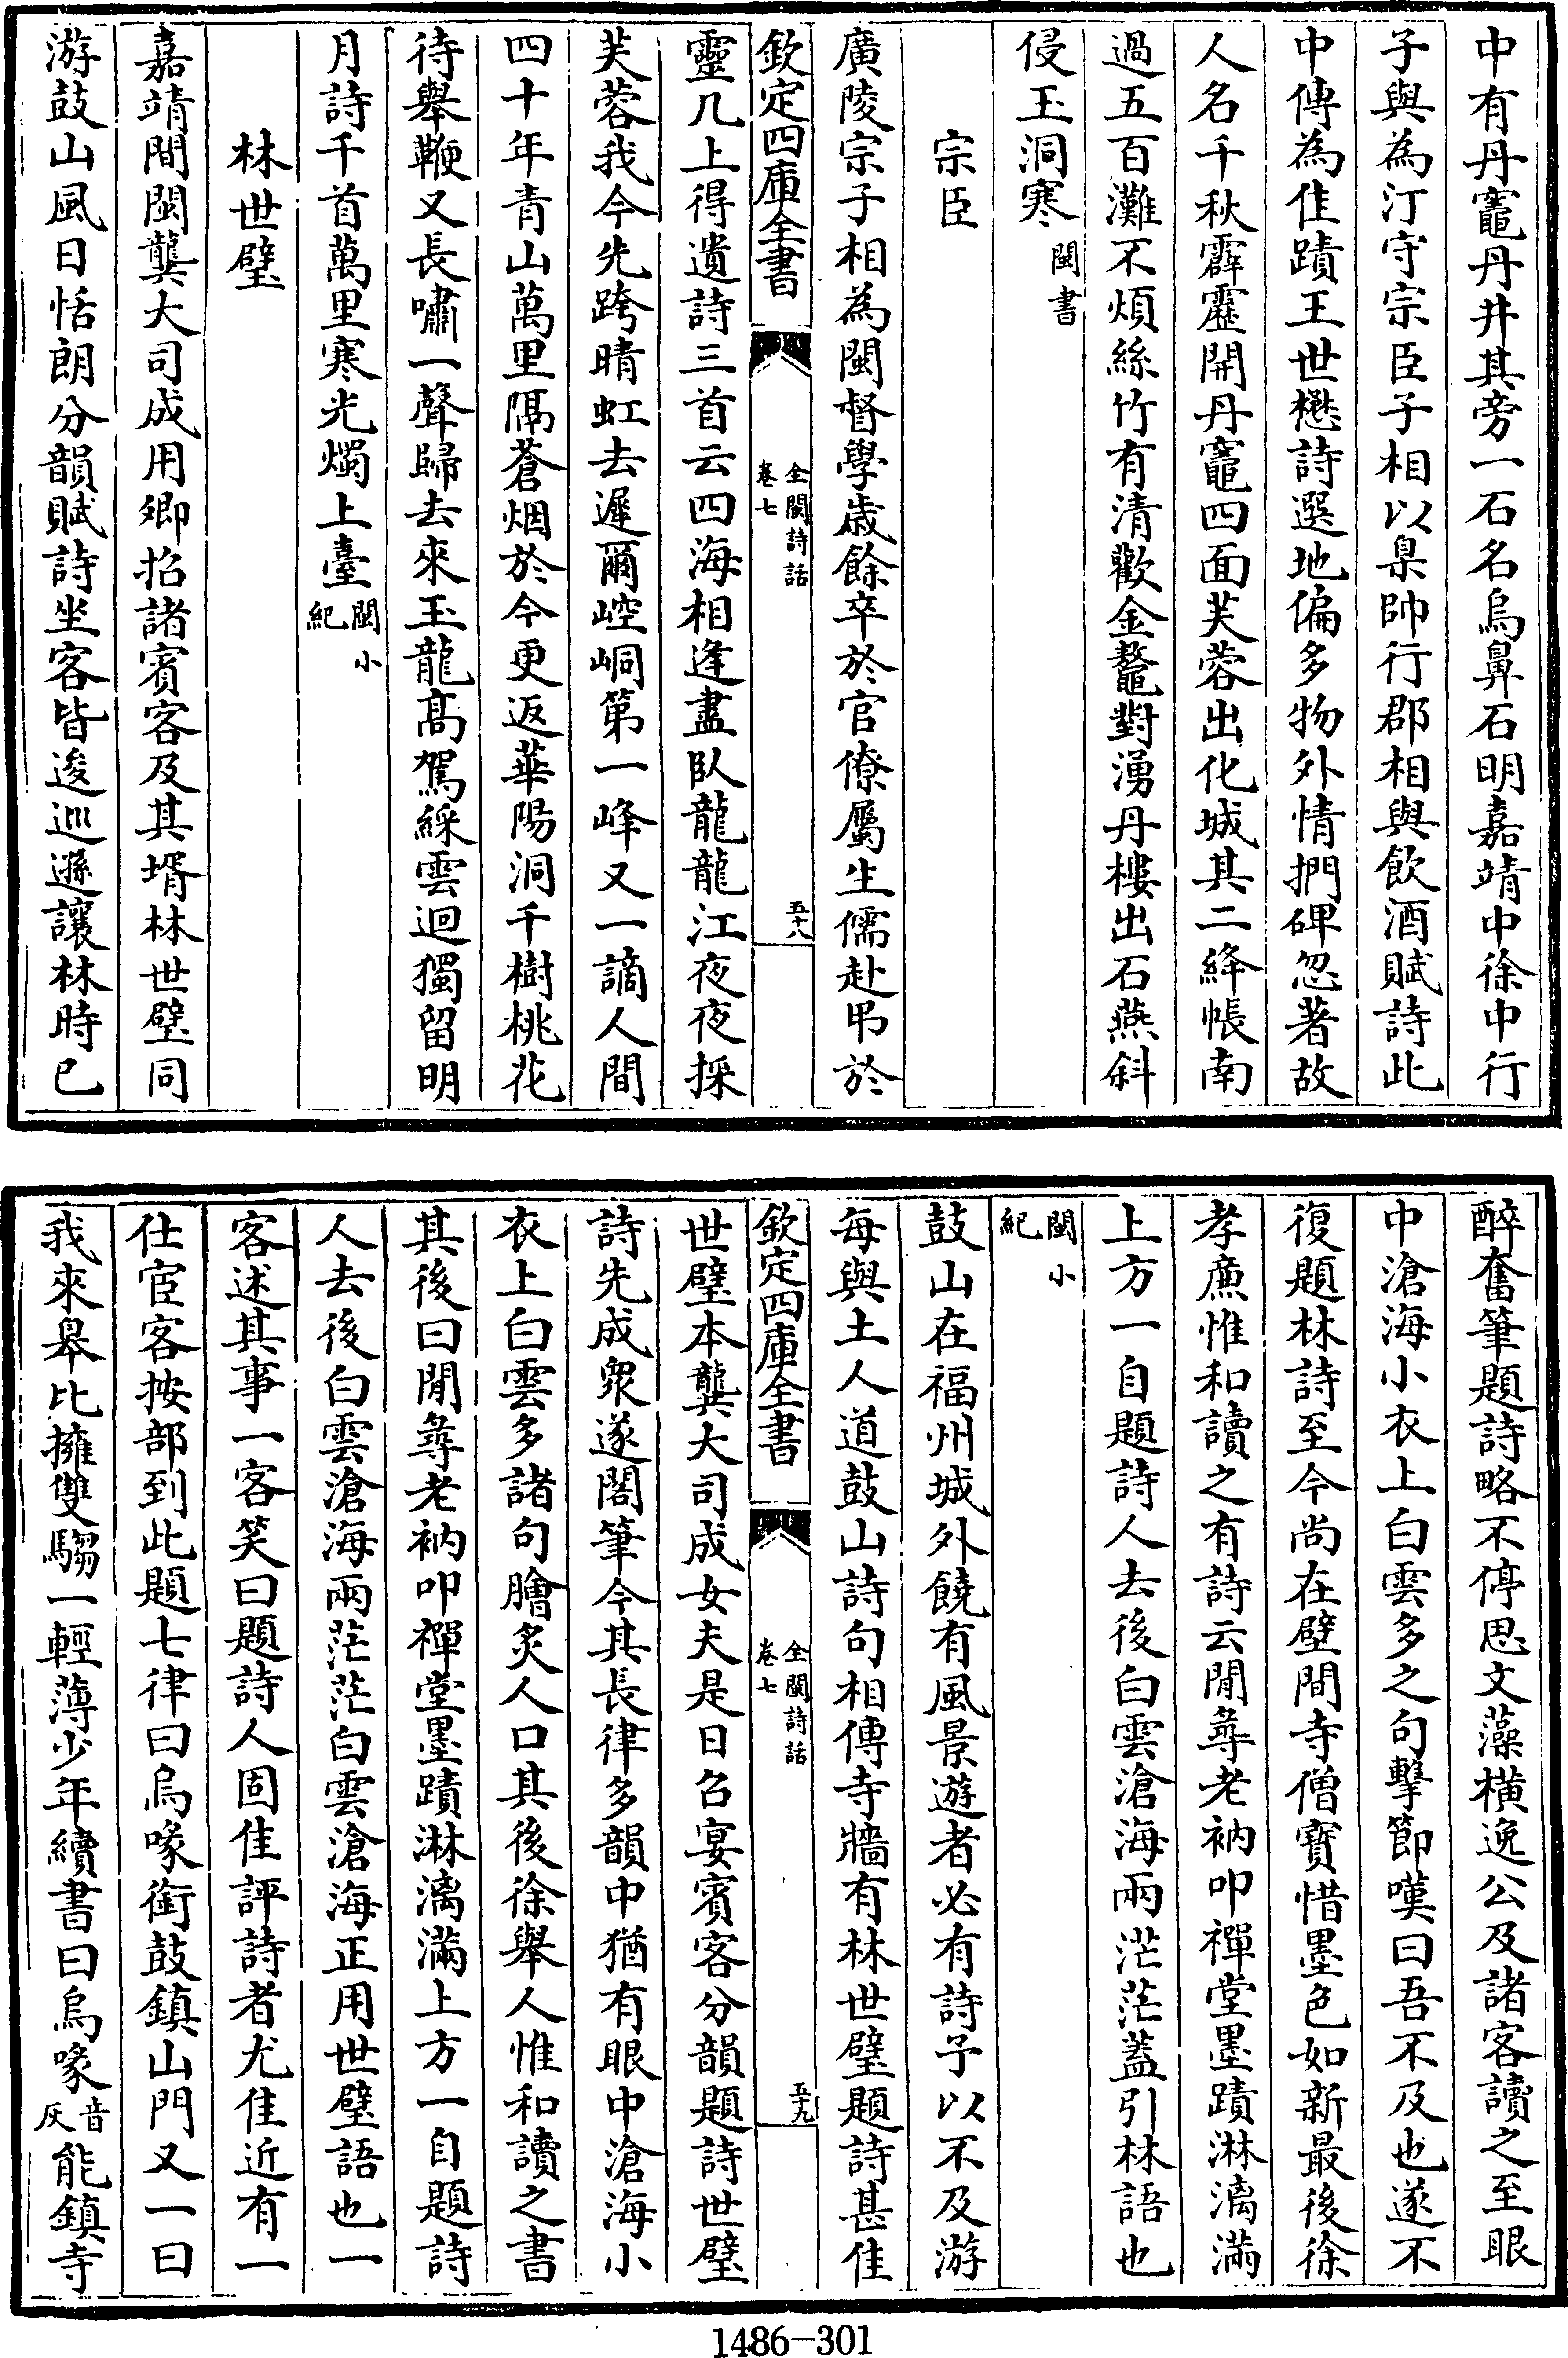 中有丹竈丹井其旁一石名烏鼻石明嘉靖中徐中行
子與為汀守宗臣子相以臬帥行郡相與飲酒賦詩此
中傳為佳蹟王世懋詩選地偏多物外情捫碑忽著故
人名千秋霹靂開丹竈四面芙蓉出化城其二絳帳南
過五百灘不煩絲竹有清歡金鼇對湧丹樓出石燕斜
侵玉洞寒閩書
宗臣
廣陵宗子相為閩督學歲餘卒於官僚屬生儒赴弔於
欽定四庫全書 全閩詩話 卷七 五十八
靈几上得遺詩三首云四海相逢盡臥龍龍江夜夜採
芙蓉我今先跨晴虹去遲爾崆峒第一峰又一謫人間
四十年青山萬里隔蒼烟於今更返華陽洞千樹桃花
待舉鞭又長嘯一聲歸去來玉龍高駕綵雲迴獨留明
月詩千首萬里寒光燭上臺閩小紀
林世璧
嘉靖間閩龔大司成用卿招諸賓客及其壻林世璧同
游鼓山風日恬朗分韻賦詩坐客皆逡巡遜讓林時已
醉奮筆題詩略不停思文藻橫逸公及諸客讀之至眼
中滄海小衣上白雲多之句擊節嘆曰吾不及也遂不
復題林詩至今尚在壁間寺僧寶惜墨色如新最後徐
孝廉惟和讀之有詩云閒尋老衲叩禪堂墨蹟淋漓滿
上方一自題詩人去後白雲滄海兩茫茫蓋引林語也
閩小紀
鼓山在福州城外饒有風景遊者必有詩予以不及游
每與土人道鼓山詩句相傳寺牆有林世璧題詩甚佳
欽定四庫全書 全閩詩話 卷七 五十九
世璧本龔大司成女夫是日召宴賓客分韻題詩世璧
詩先成眾遂閣筆今其長律多韻中猶有眼中滄海小
衣上白雲多諸句膾炙人口其後徐舉人惟和讀之書
其後曰閒尋老衲叩禪堂墨蹟淋漓滿上方一自題詩
人去後白雲滄海兩茫茫白雲滄海正用世璧語也一
客述其事一客笑曰題詩人固佳評詩者尤佳近有一
仕宦客按部到此題七律曰烏喙銜鼓鎮山門又一曰
我來皋比擁雙騶一輕薄少年續書曰烏喙音灰能鎮寺
1486-301